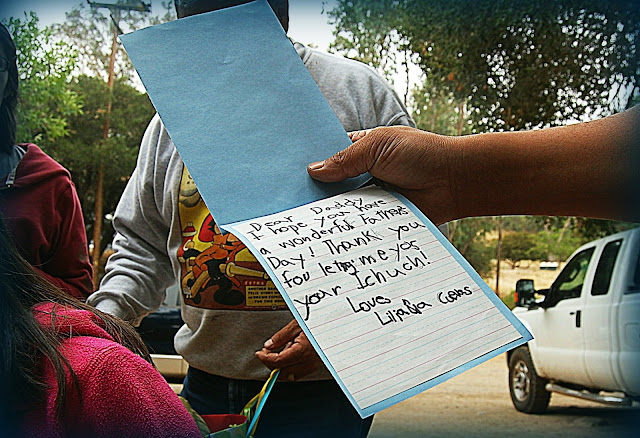 Dear Daddy
I hope you have
a wonderful Father's
Day! Thank you
for letting me
your Ichuch!
Loves